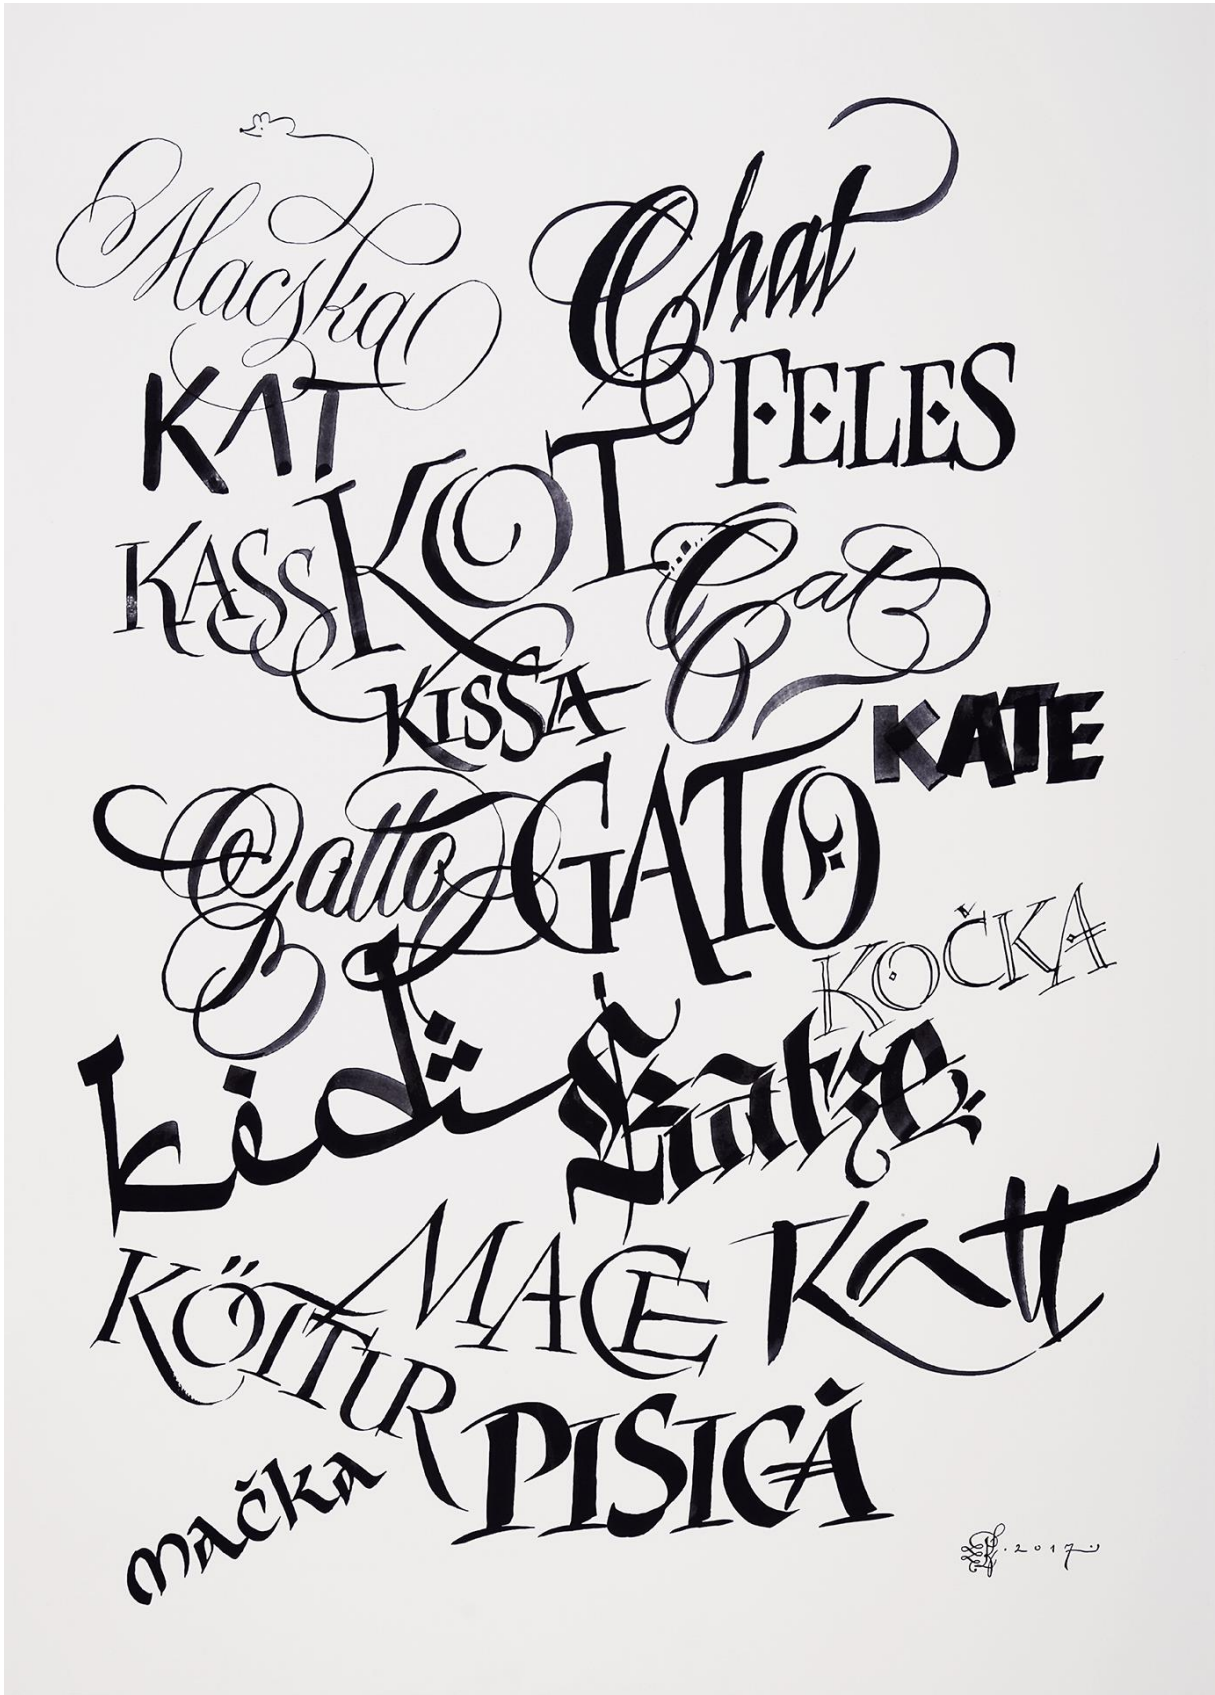 Macska
Chat
KAT
FELES
KOT
KASS
Cat
KISSA
KATE
Gatto
GATO
KOČKA
Kedi
Katze
MACE
Katt
KÖTTUR
PISICĂ
mačka
2017